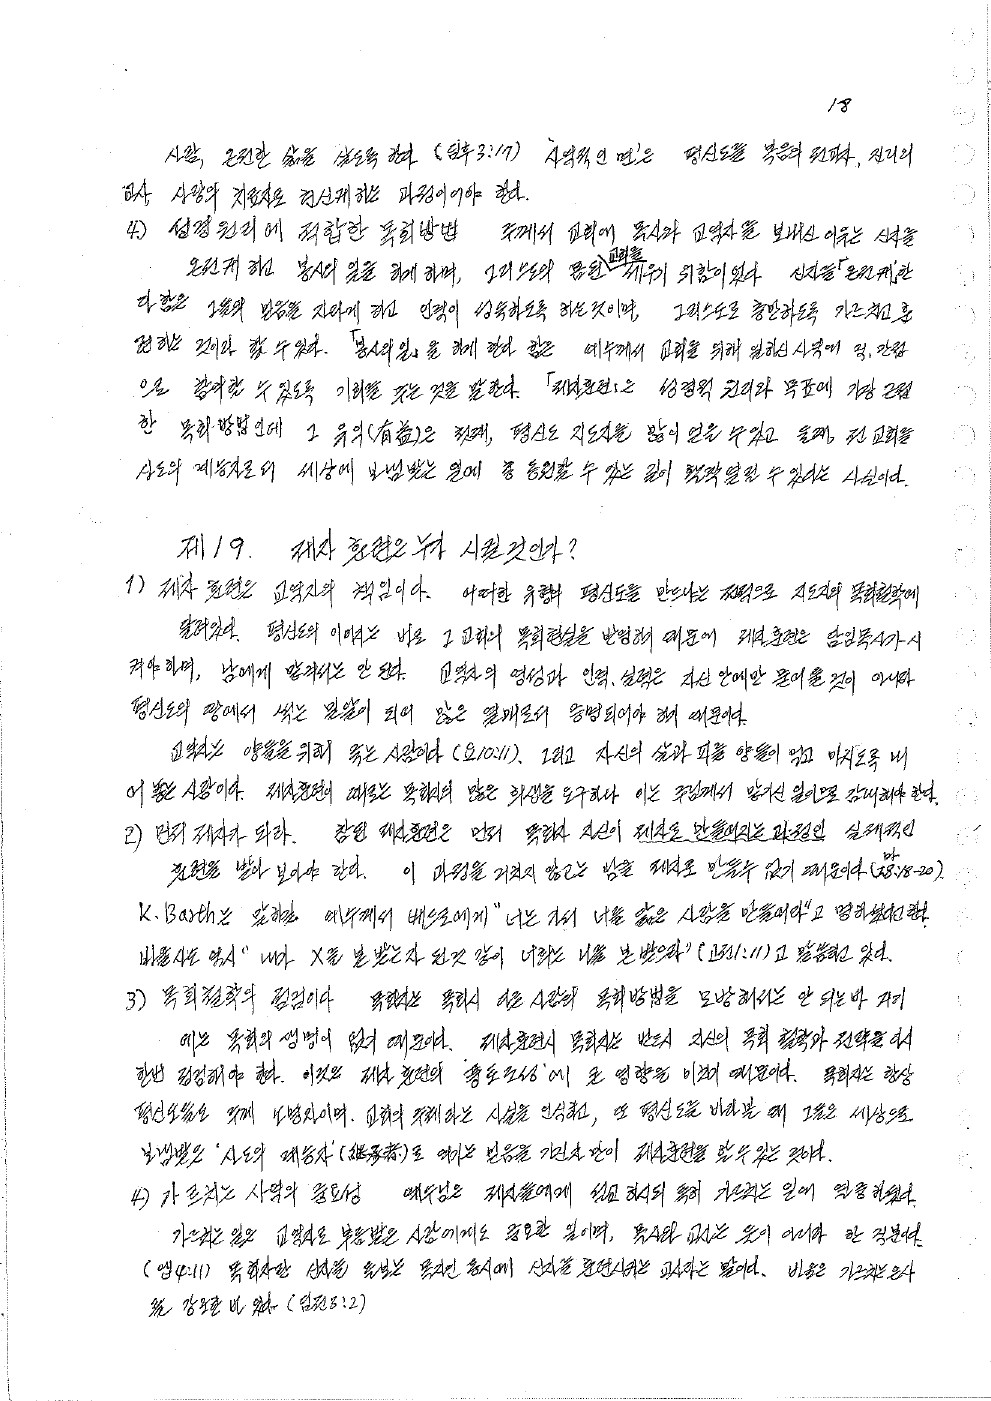 18
사람, 온전한 삶을 살도록 한다 (딤후3:17) '사역적인 면'은 평신도를 복음의 전파자, 진리의
교사, 사랑의 치료자로 헌신케하는 과정이어야 한다.
4) 성경원리에 적합한 목회방법 주께서 교회에 목사와 교역자를 보내신 이유는 신자를
온전케 하고 봉사의 일을 하게 하며, 그리스도의 몸된 교회를 세우기 위함이었다 신자를「온전케」한
다 함은 그들의 믿음을 자라게 하고 인격이 성숙하도록 하는것이며, 그리스도로 충만하도록 가르치고 훈
련하는 것이라 할 수 있다. 「봉사의 일」을 하게 한다 함은 예수께서 교회를 위해 일하신 사역에 직,간접
으로 참여할 수 있도록 기회를 주는 것을 말한다. 「제자훈련」은 성경의 원리와 목표에 가장 근접
한 목회방법인데 그 유익(有益)은 첫째, 평신도 지도자를 많이 얻을 수 있고 둘째, 전 교회를
사도의 계승자로서 세상에 보냄받는 일에 총 동원할 수 있는 길이 활짝 열릴 수 있다는 사실이다.
제19. 제자 훈련은 누가 시킬 것인가?
1) 제자 훈련은 교역자의 책임이다. 어떠한 유형의 평신도를 만드냐는 전적으로 지도자의 목회철학에
달려있다. 평신도의 이미지는 바로 그 교회의 목회현실을 반영하기 때문에 제자훈련은 담임목사가 시
켜야하며, 남에게 맡겨서는 안 된다. 교역자의 영성과 인격.실력은 자신 안에만 묻어둘 것이 아니라
평신도의 땅에서 썩는 밀알이 되어 많은 열매로서 증명되어야 하기 때문이다.
교역자는 양들을 위해 죽는 사람이다 (요10:11). 그리고 자신의 살과 피를 양들이 먹고 마시도록 내
어 놓는 사람이다. 제자훈련이 때로는 목회자의 많은 희생을 요구하나 이는 주님께서 맡기신 일이므로 감내해야 한다.
2) 먼저 제자가 되라. 참된 제자훈련은 먼저 목회자 자신이 제자로 만들어지는 과정인 실제적인
훈련을 받아 보아야 한다. 이 과정을 거치지 않고는 남을 제자로 만들수 없기 때문이다 (마28:18-20).
K. Barth는 말하길 예수께서 베드로에게 "너는 가서 너를 닮은 사람을 만들어라"고 명하셨다고 한다.
바울사도 역시 "내가 X를 본 받는자 된것 같이 너희는 나를 본 받으라" (고전11:1)고 말씀하고 있다.
3) 목회철학의 점검이다 목회자는 목회시 다른 사람의 목회방법을 모방해서는 안 되는바 거기
에는 목회의 생명이 없기 때문이다. 제자훈련시 목회자는 반드시 자신의 목회 철학과 전략을 다시
한번 점검해야 한다. 이것은 제자 훈련의 '풍토조성'에 큰 영향을 미치기 때문이다. 목회자는 항상
평신도들도 주께 소명자이며, 교회의 주체라는 사실을 인식하고, 또 평신도를 바라볼 때 그들은 세상으로
보냄받은 '사도의 계승자'(繼承者)로 여기는 믿음을 가진자 만이 제자훈련을 할 수 있는 것이다.
4) 가르치는 사역의 중요성 예수님은 제자들에게 설교하시되 특히 가르치는 일에 열중하셨다.
가르치는 일은 교역자로 부름받은 사람에게도 중요한 일이며, 목사와 교사는 둘이 아니라 한 직분이다.
(엡4:11) 목회자란 신자를 돌보는 목자인 동시에 신자를 훈련시키는 교사라는 말이다. 바울은 가르치는 은사
를 강조한 바 있다. (딤전3:2)